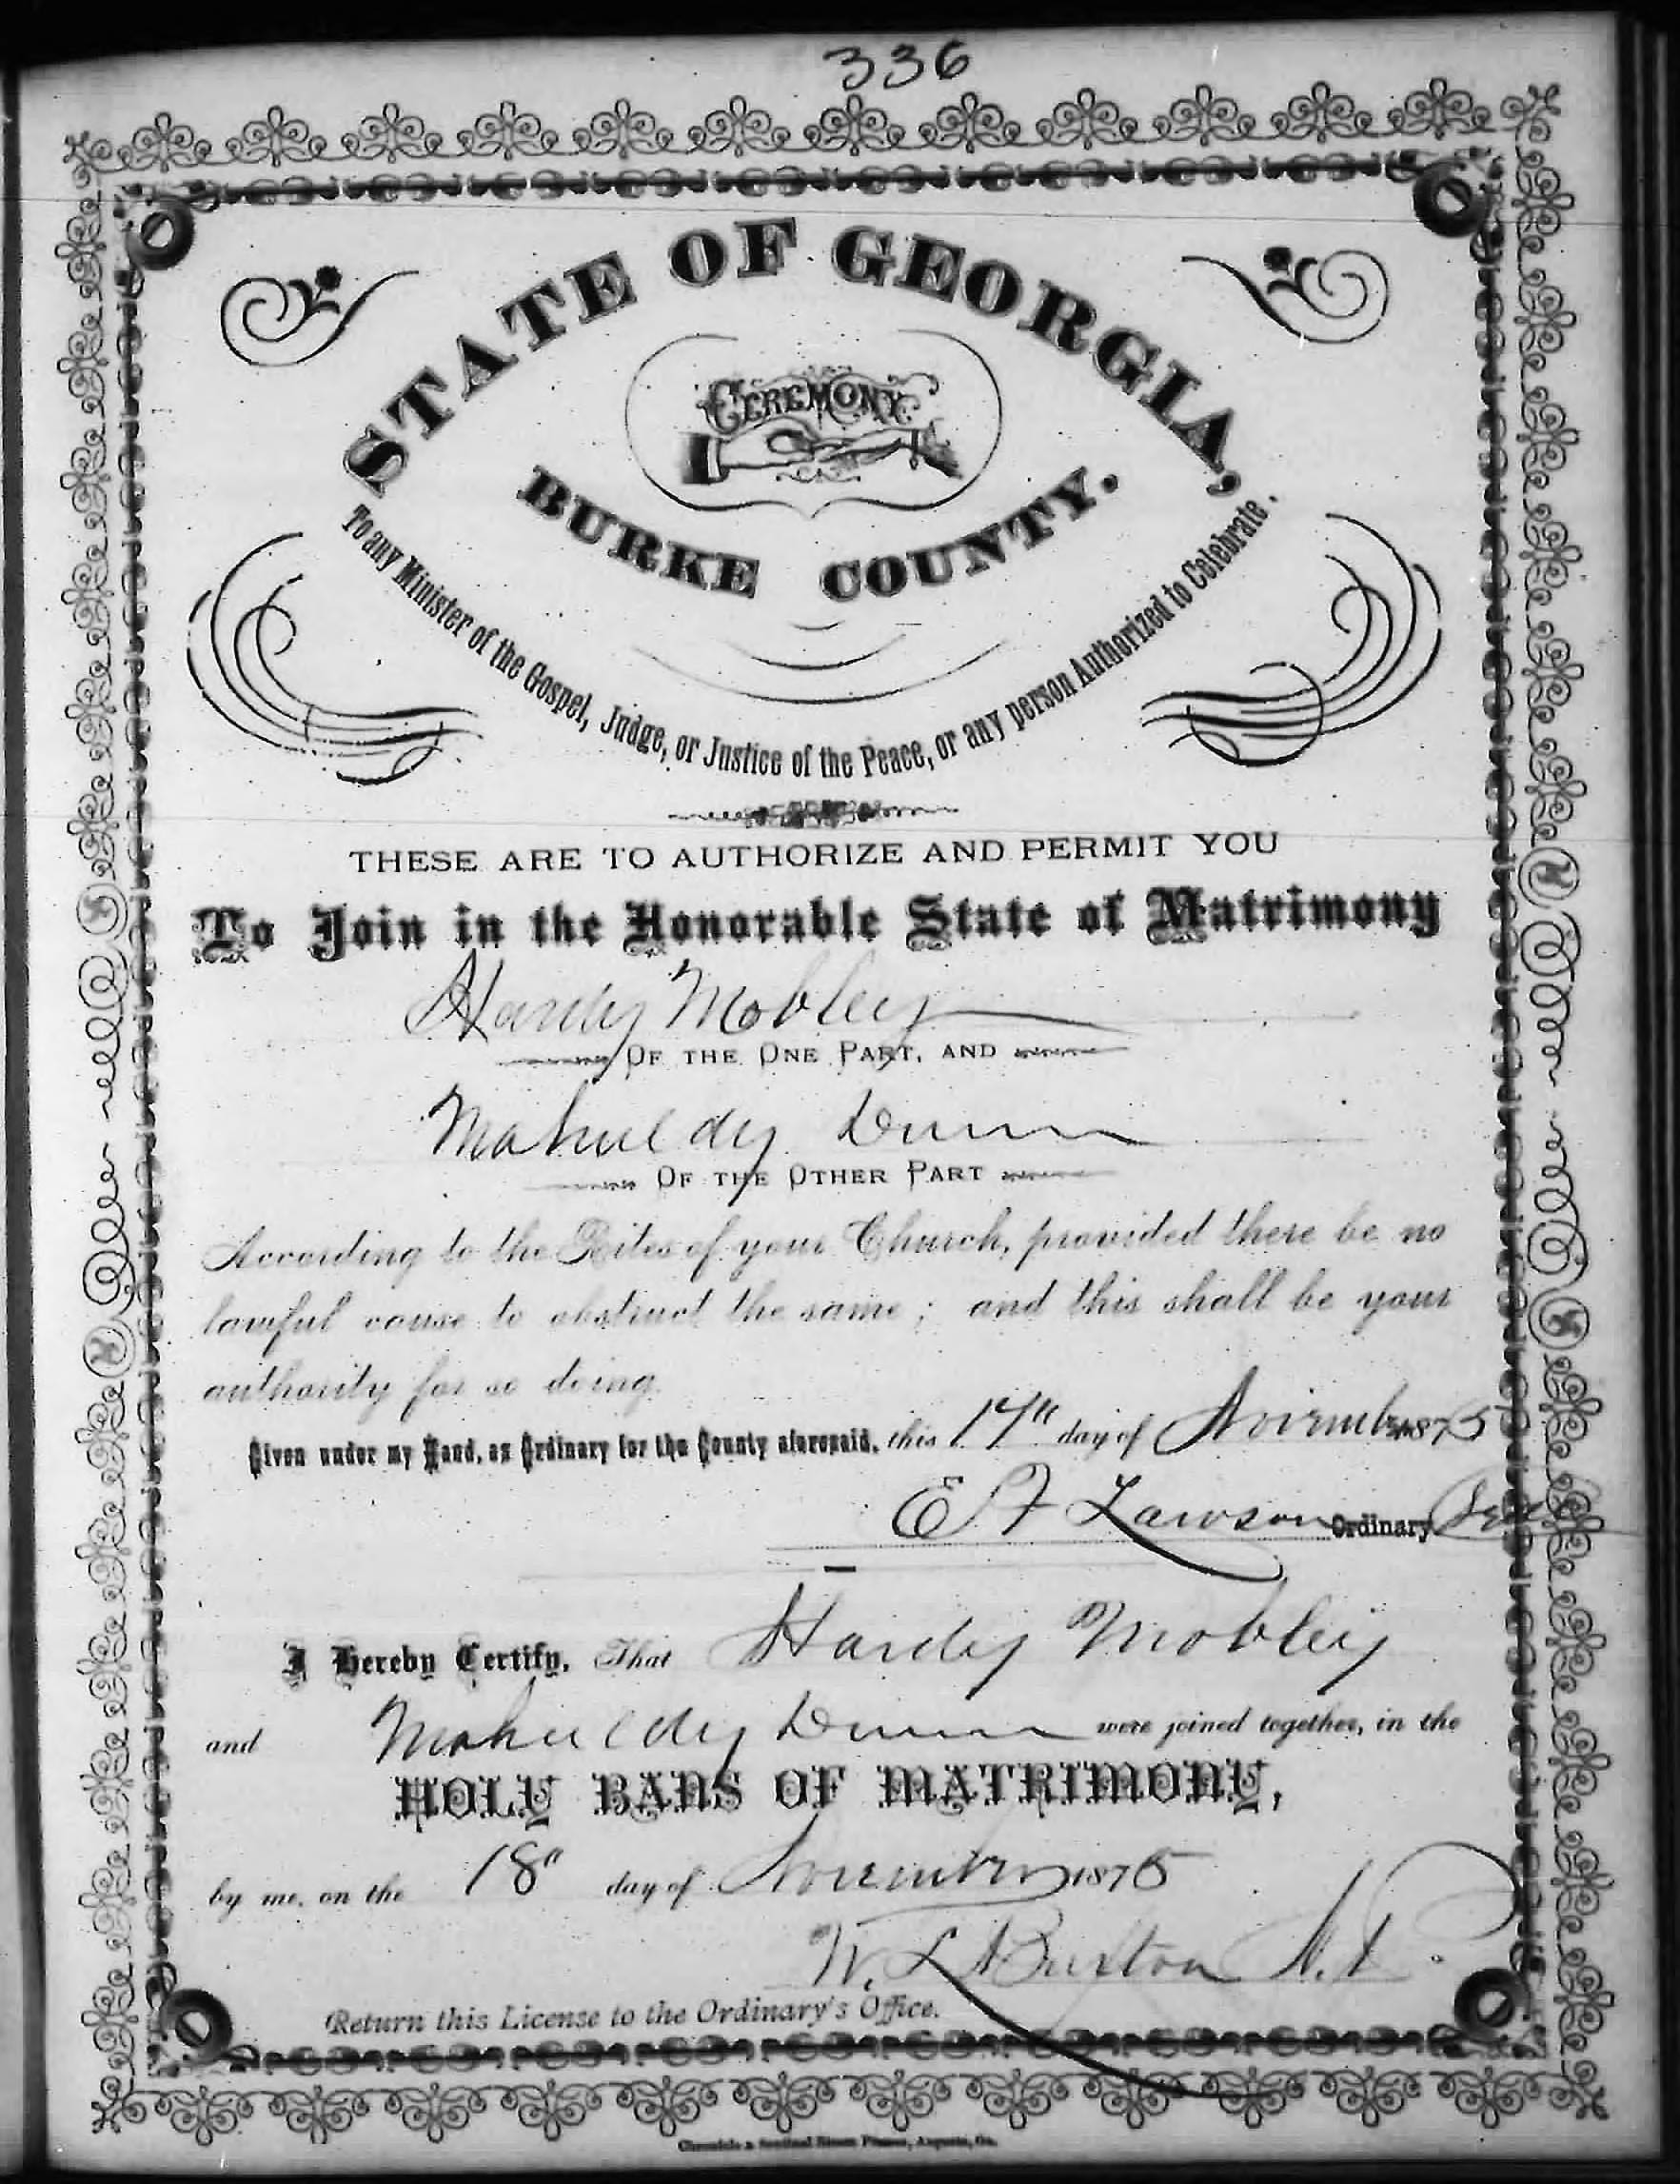 336
STATE OF GEORGIA,
CEREMONY.
BURKE COUNTY.
To any Minister of the Gospel, Judge, or Justice of the Peace, or any person Authorized to Celebrate.
THESE ARE TO AUTHORIZE AND PERMIT YOU
To Join in the Honorable State of Matrimony
Hardy Mobley
OF THE ONE PART, AND
Dunn
OF THE OTHER PART
According to the Rites of your Church, provided there be no
lawful cause to obstruct the same; and this shall be your
authority for so doing.
Given under my Hand, as Ordinary for the County aforesaid, this 17" day of November 1875
E F Lawson Ordinary
I Hereby Certify, That Hardy Mobley
and Dunn were joined together, in the
HOLY BANS OF MATRIMONY,
by me, on the 18" day of November 1875
W. L. Buxton N. P.
Return this License to the Ordinary's Office.
Chronicle & Sentinel Steam Presses, Augusta, Ga.